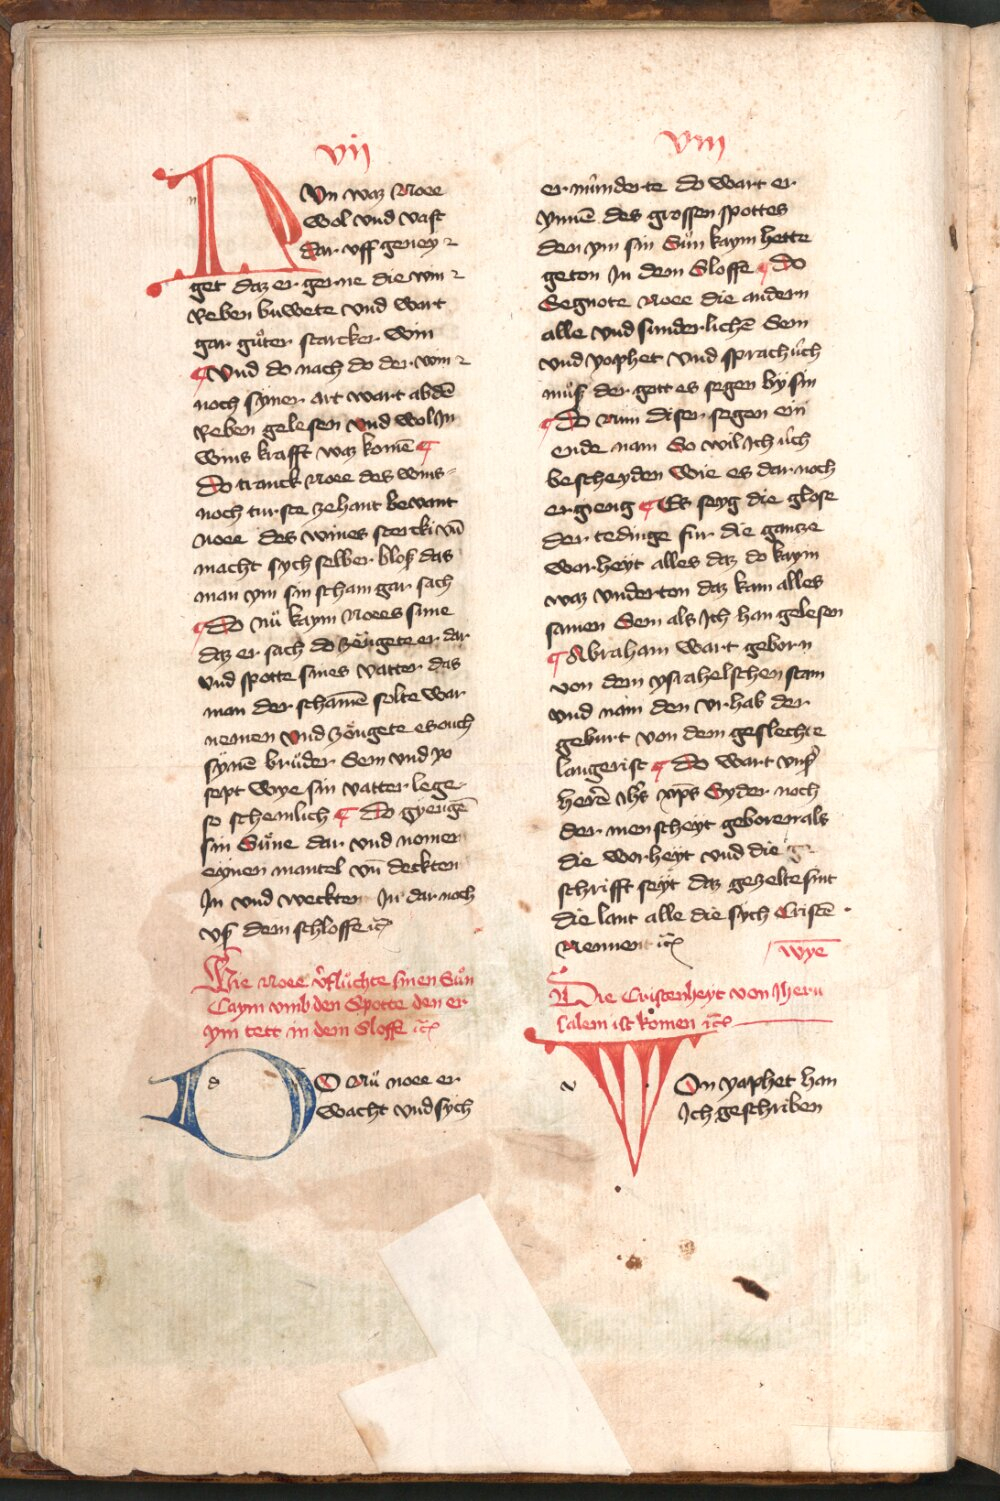 vij
NUn waz Noee
wol vnd vast
dar vff geney
get daz er gerne die win
Reben buwete vnd wart
gar gůter starcker win
¶ Vnd do nach do der win
noch syner art wart abdē
Reben gelesen vnd wol Jn
wins krafft waz komē ¶
Do tranck Noee des wins
noch turste zehant bevant
Noee des wines stercki vn̄
macht sych selber bloß das
man ym sin scham gar sach
¶ Do nů kaym Noees sune
daz er sach do zöugete er dar
vnd spotte sines vatter das
man der schamē solte war
nemen vnd zöugete es ouch
synē brůder Sem vnd yo
sept wye sin vatter lege
so schemlich ¶ Do gyengē
sin Sůne dar vnd nomen
eynen mantel vn̄ deckten
Jn vnd weckten Jn dar noch
vß dem schloffe ꝛc
Wie Noee v̉flůchte sinen Sůn
Caym vmb den Spotte den er
ym tett in dem Sloffe ꝛc
DO Nů noee er
wacht vnd sych
viij
ermůnderte do wart er
ynnē des grossen spottes
den ym sin Sůn kaym hette
geton Jn dem Sloffe ¶ Do
Segnote Noee die andern
alle vnd sunderlichē Sem
vnd yophet vnd sprach ůch
můß der gottes segen by sin
¶ Do Nun diser segen ein
ende nam So wil Jch ůch
bescheyden Wie es dar noch
ergieng ¶ Es seyg die glose
der tedinge fur die gantze
worheyt alles daz do kaym
waz vnderton daz kam alles
samen Sem als Jch han gelesen
¶ Abraham wart geborn
von dem ysrahelschen stam
vnd nam den vrhab der
geburt von dem geslechte
langerist ¶ Do wart vnß̉
herrē ihs xps Syder noch
der menscheyt geboren als
die worheyt vnd die
schrifft seyt daz gezelte sint
die lant alle die sych Cristē
Nennent ꝛc
Wye
Die Cristenheyt von Jheru
salem ist komen ꝛc
VOn yaphet han
Jch geschriben